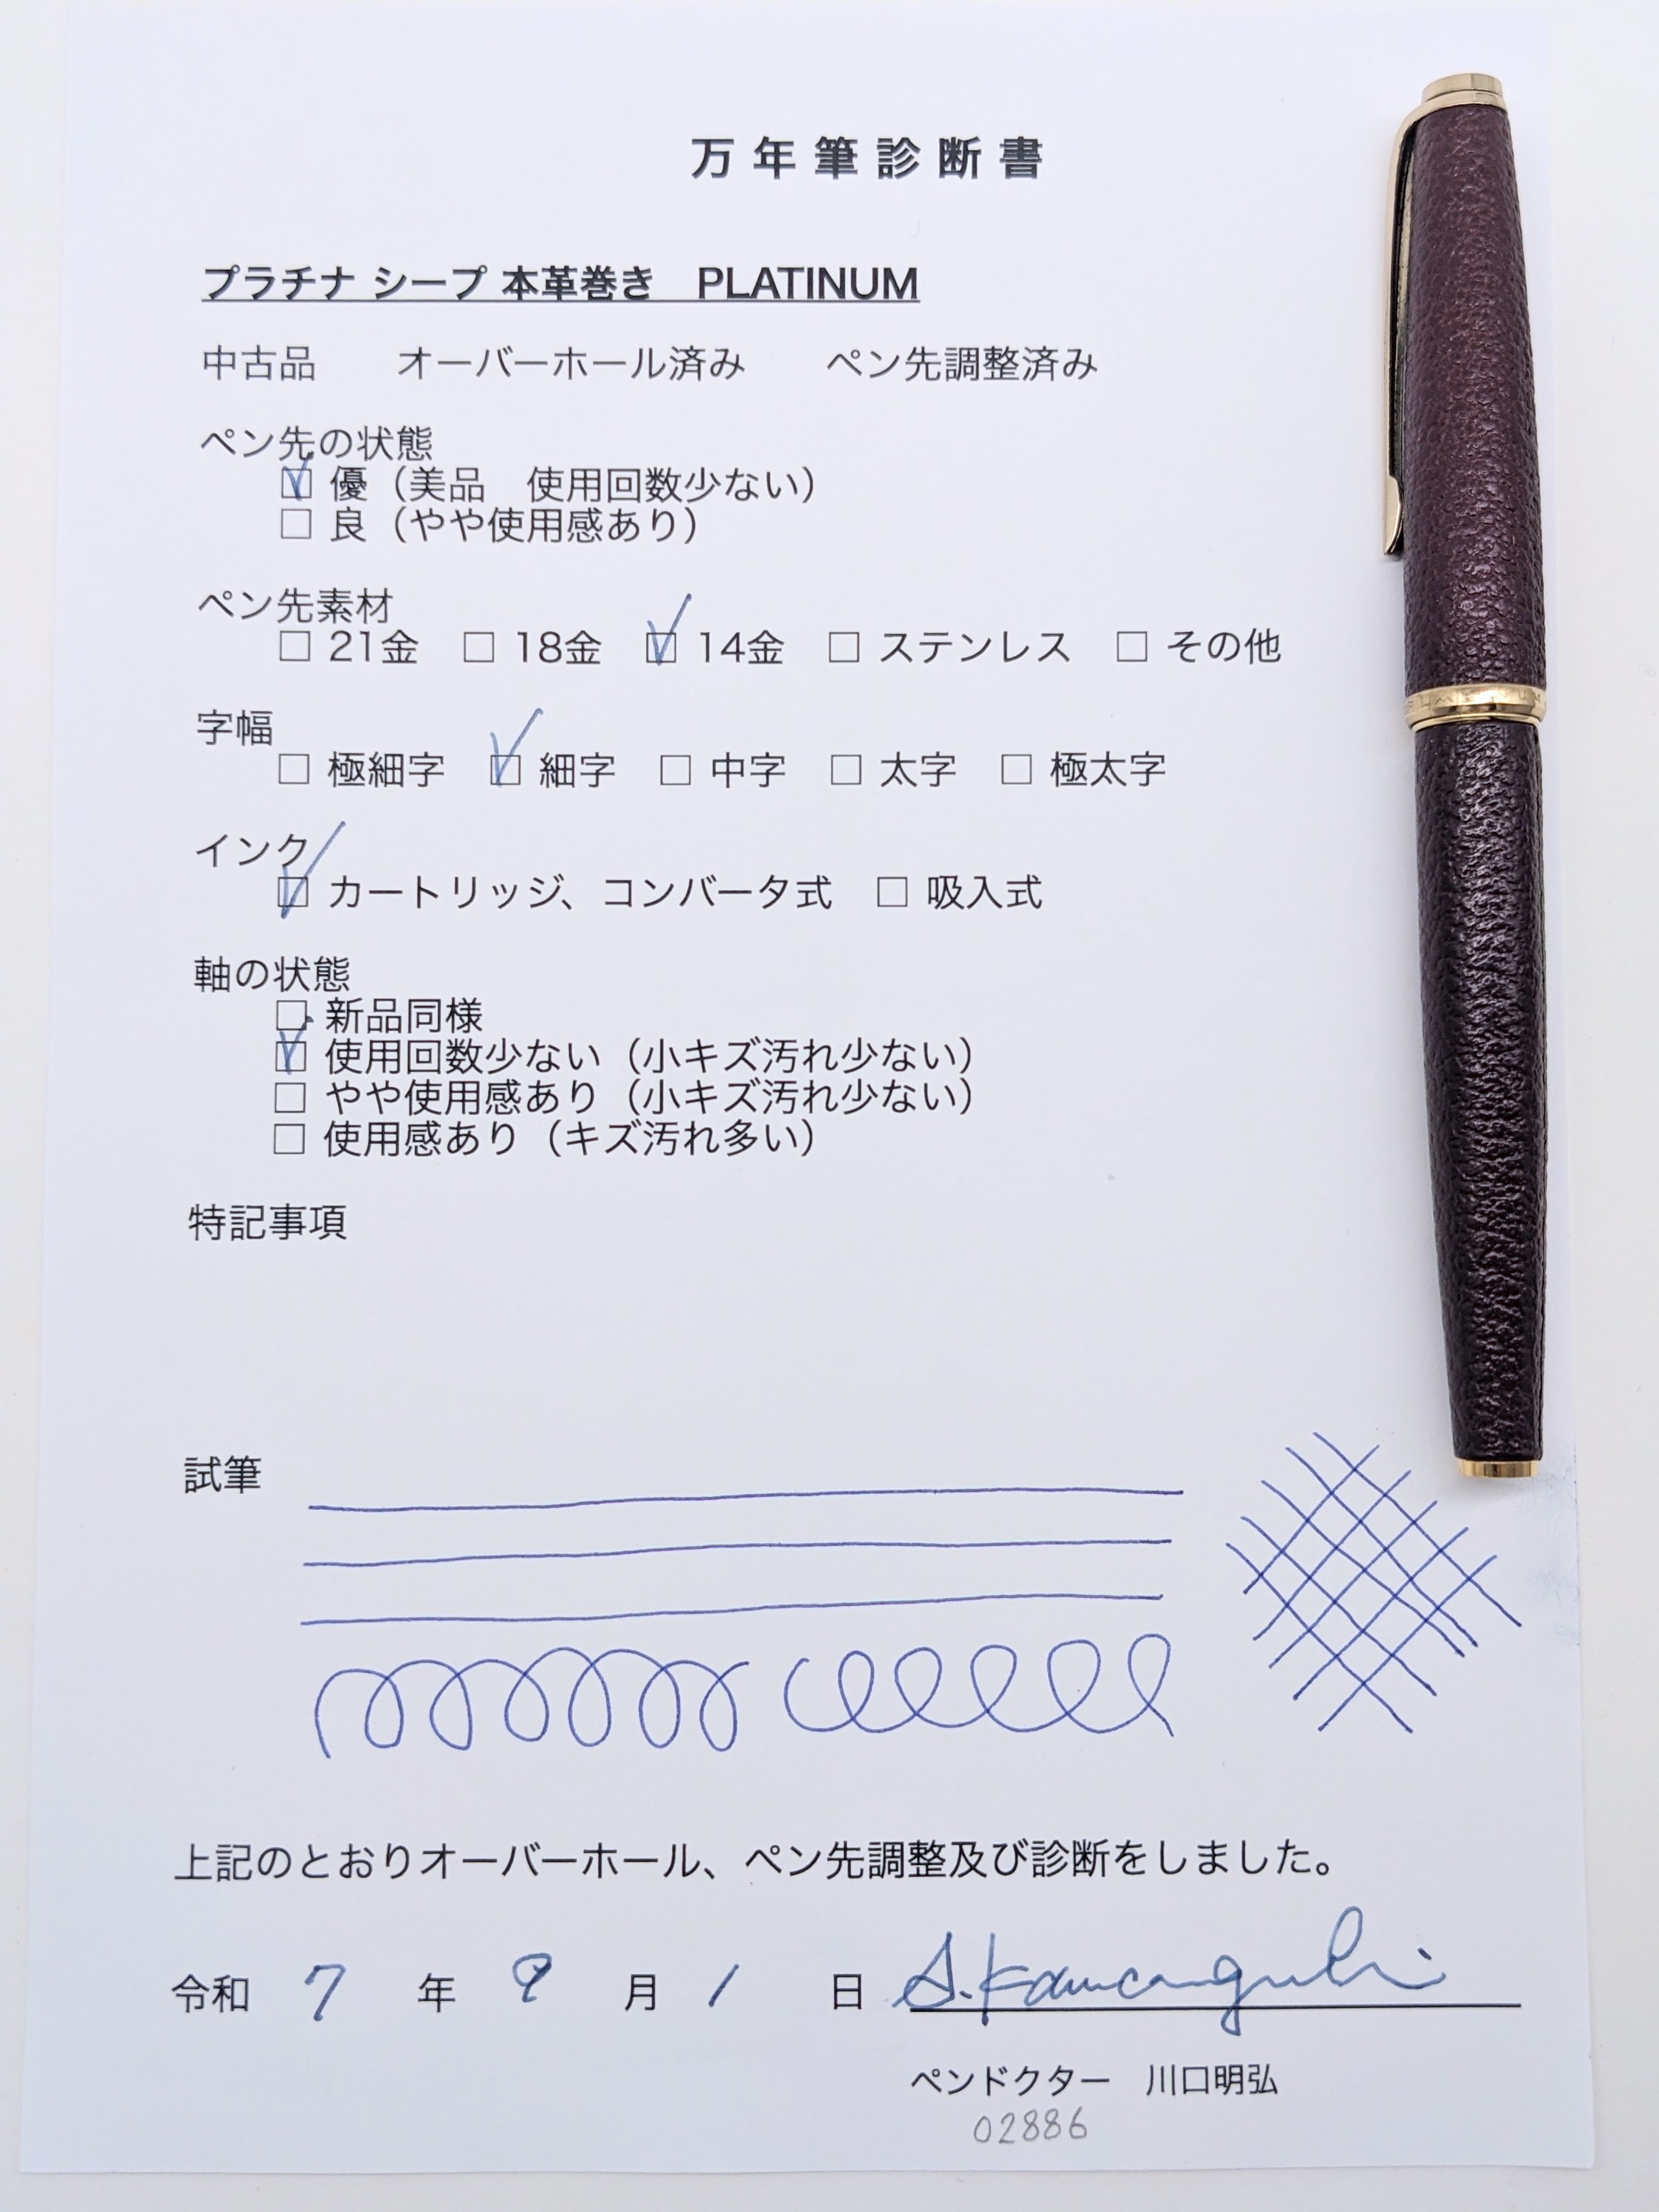 万年筆診断書
プラチナ シープ 本革巻き　PLATINUM
中古品　　オーバーホール済み　　ペン先調整済み
ペン先の状態
☑ 優（美品　使用回数少ない）
☐ 良（やや使用感あり）
ペン先素材
☐ 21金　☐ 18金　☑ 14金　☐ ステンレス　☐ その他
字幅
☐ 極細字　☑ 細字　☐ 中字　☐ 太字　☐ 極太字
インク
☑ カートリッジ、コンバータ式　☐ 吸入式
軸の状態
☐ 新品同様
☑ 使用回数少ない（小キズ汚れ少ない）
☐ やや使用感あり（小キズ汚れ少ない）
☐ 使用感あり（キズ汚れ多い）
特記事項
試筆
上記のとおりオーバーホール、ペン先調整及び診断をしました。
令和 7 年 9 月 1 日 A.Kawaguchi
ペンドクター　川口明弘
02886